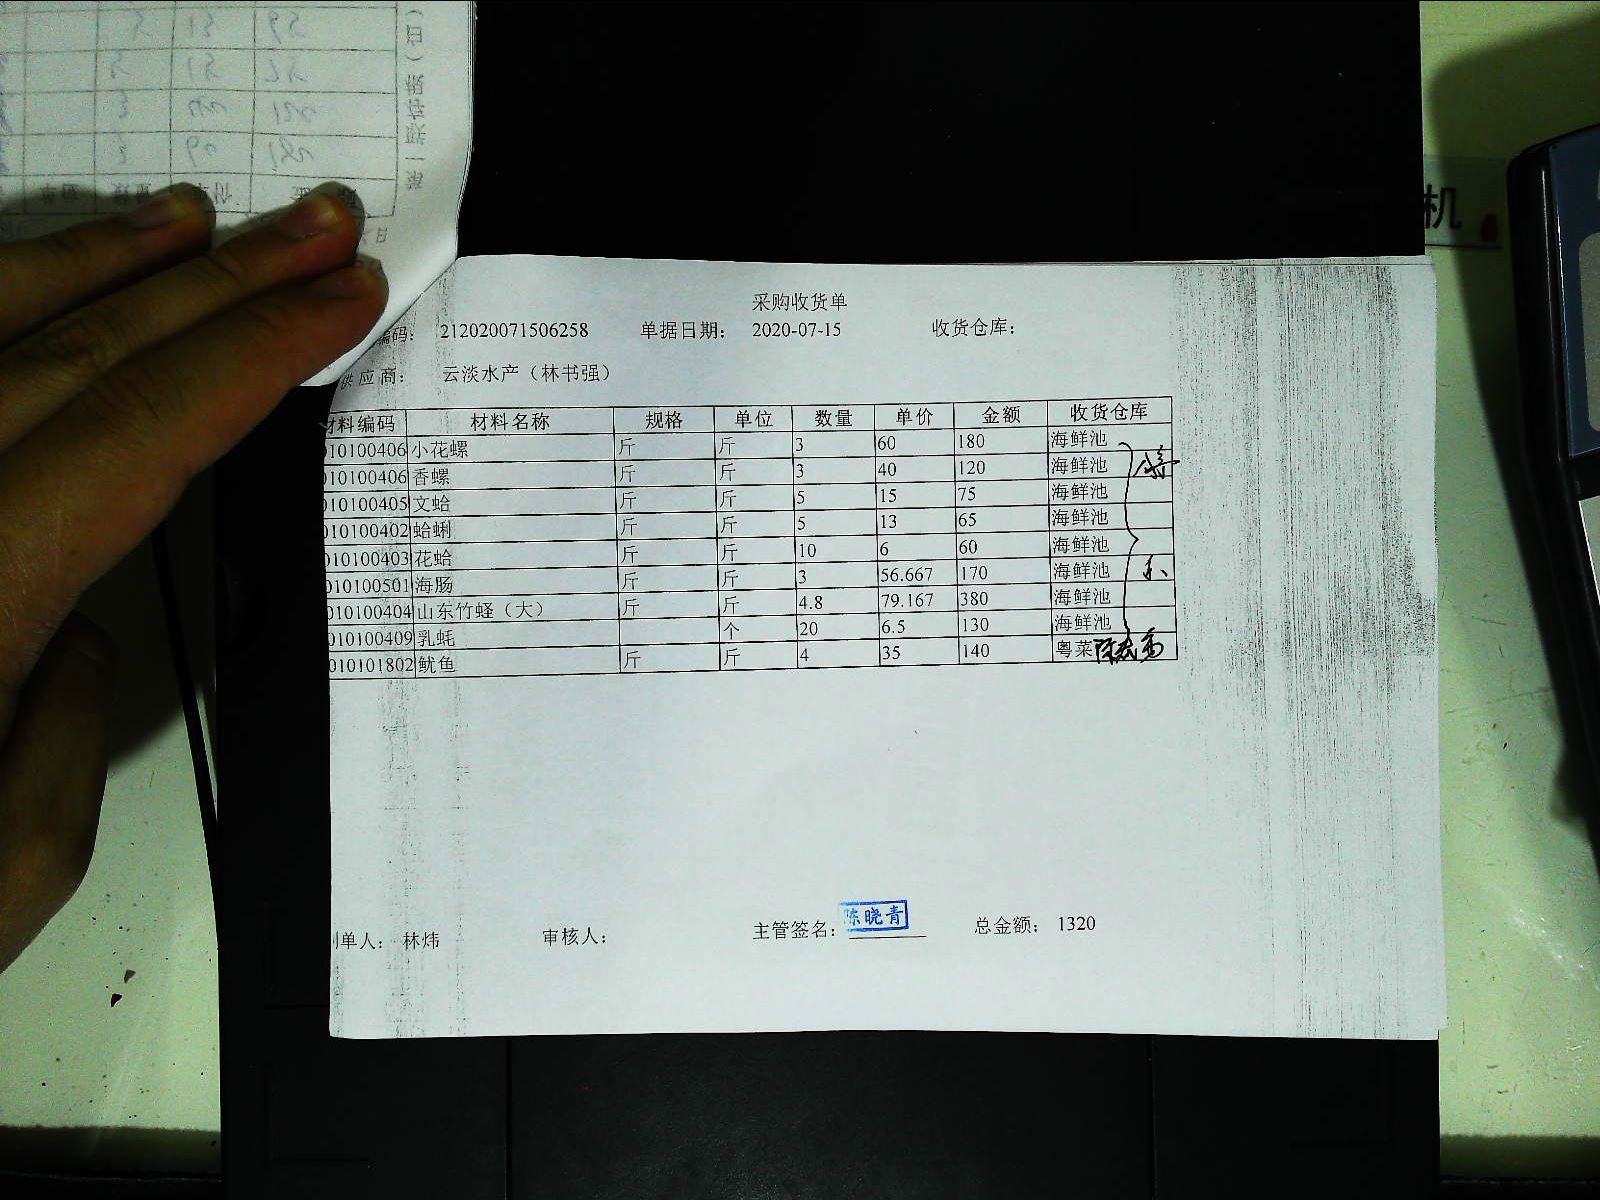 采购收货单
编码： 212020071506258 单据日期： 2020-07-15 收货仓库：
供应商： 云淡水产（林书强）
材料编码 材料名称 规格 单位 数量 单价 金额 收货仓库
010100406 小花螺 斤 斤 3 60 180 海鲜池
010100406 香螺 斤 斤 3 40 120 海鲜池
010100405 文蛤 斤 斤 5 15 75 海鲜池
010100402 蛤蜊 斤 斤 5 13 65 海鲜池
010100403 花蛤 斤 斤 10 6 60 海鲜池
010100501 海肠 斤 斤 3 56.667 170 海鲜池
010100404 山东竹蛏（大） 斤 斤 4.8 79.167 380 海鲜池
010100409 乳蚝 个 20 6.5 130 海鲜池
010101802 鱿鱼 斤 斤 4 35 140 粤菜
制单人： 林炜 审核人： 主管签名： 陈晓青 总金额： 1320
机